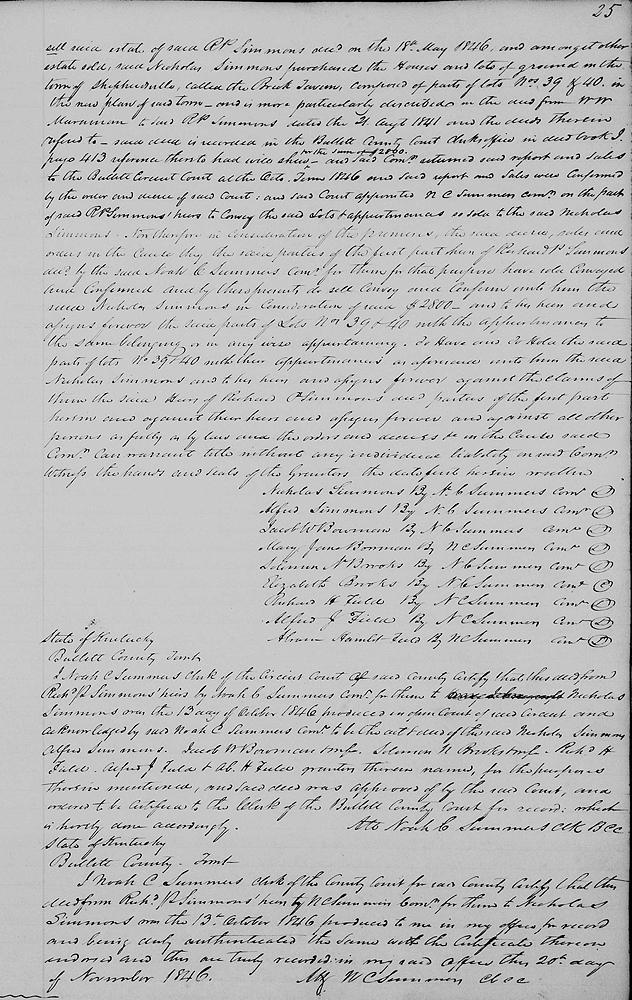 25
sell said estate of said Rd P Simmons decd on the 18th May 1846, and amongst other
estate sold, said Nicholas Simmons purchased the Houses and lots of ground in the
town of Shepherdsville, called the Brick Tavern, composed of parts of lots Nos 39 & 40. in
the new plan of said town - and is more particularly described in the deed from W W
to said Rd P Simmons dated the 21 Augt 1841 and the deeds therein
refered to - said deed is recorded in the Bullitt County Court clerks office in deed book I.
for the sum of $2800.
page 413 reference thereto had will shew - and said Comr. returned said report and sales
to the Bullitt Circuit Court at the Octo. Term 1846 and said report and Sales were Confirmed
by the order and decree of said Court: and said Court appointed N C Summers comr. on the part
of said Rd P Simmons' heirs to Convey the said Lots & appurtenances so sold to the said Nicholas
Simmons. Now therefore in Consideration of the premises, the said decree, sales and
orders in the Cause they the said parties of the first part heirs of Richard P. Simmons
decd. by the said Noah C Summers Comr. for them for that purpose have sold Conveyed
and Confirmed and by these presents do sell Convey and Confirm unto him the
said Nicholas Simmons in Consideration of said $2800 - and to his heirs and
assigns forever the said parts of Lots Nos 39 & 40 with the appurtenances to
the same belonging or in any wise appertaining. To Have and To Hold the said
parts of lots No 39 & 40 with their appurtenances as aforesaid unto him the said
Nicholas Simmons and to his heirs and assigns forever against the claims of
them the said Heirs of Richard P Simmons decd parties of the first part
herein and against their heirs and assigns forever and against all other
persons as fully as by law and the orders and decrees &c in the Cause said
Comr. Can warrant title without any individual liability on said Comr.
Witness the hands and seals of the Grantors the date first herein written
Nicholas Simmons By N. C Summers Comr
Alfred Simmons By N C Summers Comr
Jacob W Bowman By N C Summers Comr
Mary Jane Bowman By N C Summers Comr
Solomon N Brooks By N C Summers Comr
Elizabeth Brooks By N C Summers Comr
Richard H Field By N C Summers Comr
Alfred J Field By N C Summers Comr
Hamlet Field By N C Summers Comr
State of Kentucky
Bullitt County Towit
I Noah C Summers Clerk of the Circuit Court of said County Certify that this deed from
Richd P Simmons' heirs by Noah C Summers Comr. for them to Nicholas
Simmons was the 13 day of October 1846 produced in open Court of said Circuit and
acknowledged by said Noah C Summers Comr to be the act & deed of the said Nicholas Simmons
Alfred Simmons. Jacob W Bowman & wife. Solomon N Brooks & wife. Richd H
Field. Alfred J Field & Ab. H Field grantors therein named, for the purposes
therein mentioned, and said deed was approved of by the said Court, and
ordered to be Certified to the Clerk of the Bullitt County Court for record: which
is hereby done accordingly. Atte Noah C Summers Clk B C C
State of Kentucky
Bullitt County. Towit
I Noah C Summers clerk of the County Court for said County Certify that this
deed from Richd. P Simmons' heirs by N C Summers Comr. for them to Nicholas
Simmons was the 13th October 1846 produced to me in my office for record
and being duly authenticated the same with the Certificate thereon
endorsed and this are truly recorded in my said office this 20th day
of November 1846. Att N C Summers cl b c c